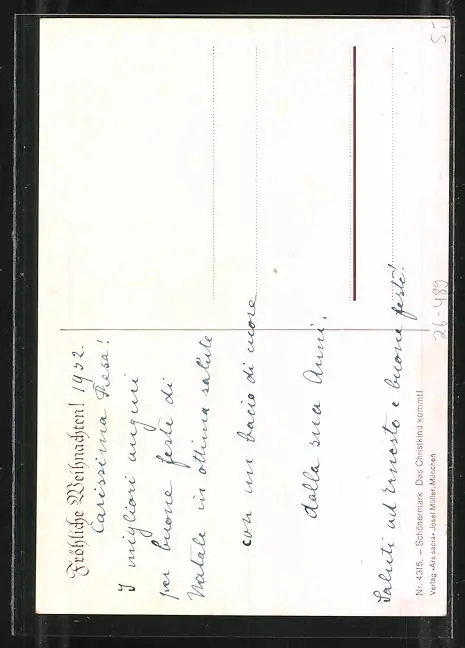 Fröhliche Weihnachten! 1932.
Carissima Resa!
I migliori auguri
per buone feste di
Natale in ottima salute
con un bacio di cuore
dalla sua Anni.
Saluti ad Ernesto e buone feste!
Nr. 4315. – Schönermark. Das Christkind kommt!
Verlag »Ars sacra« Josef Müller, München
26-489